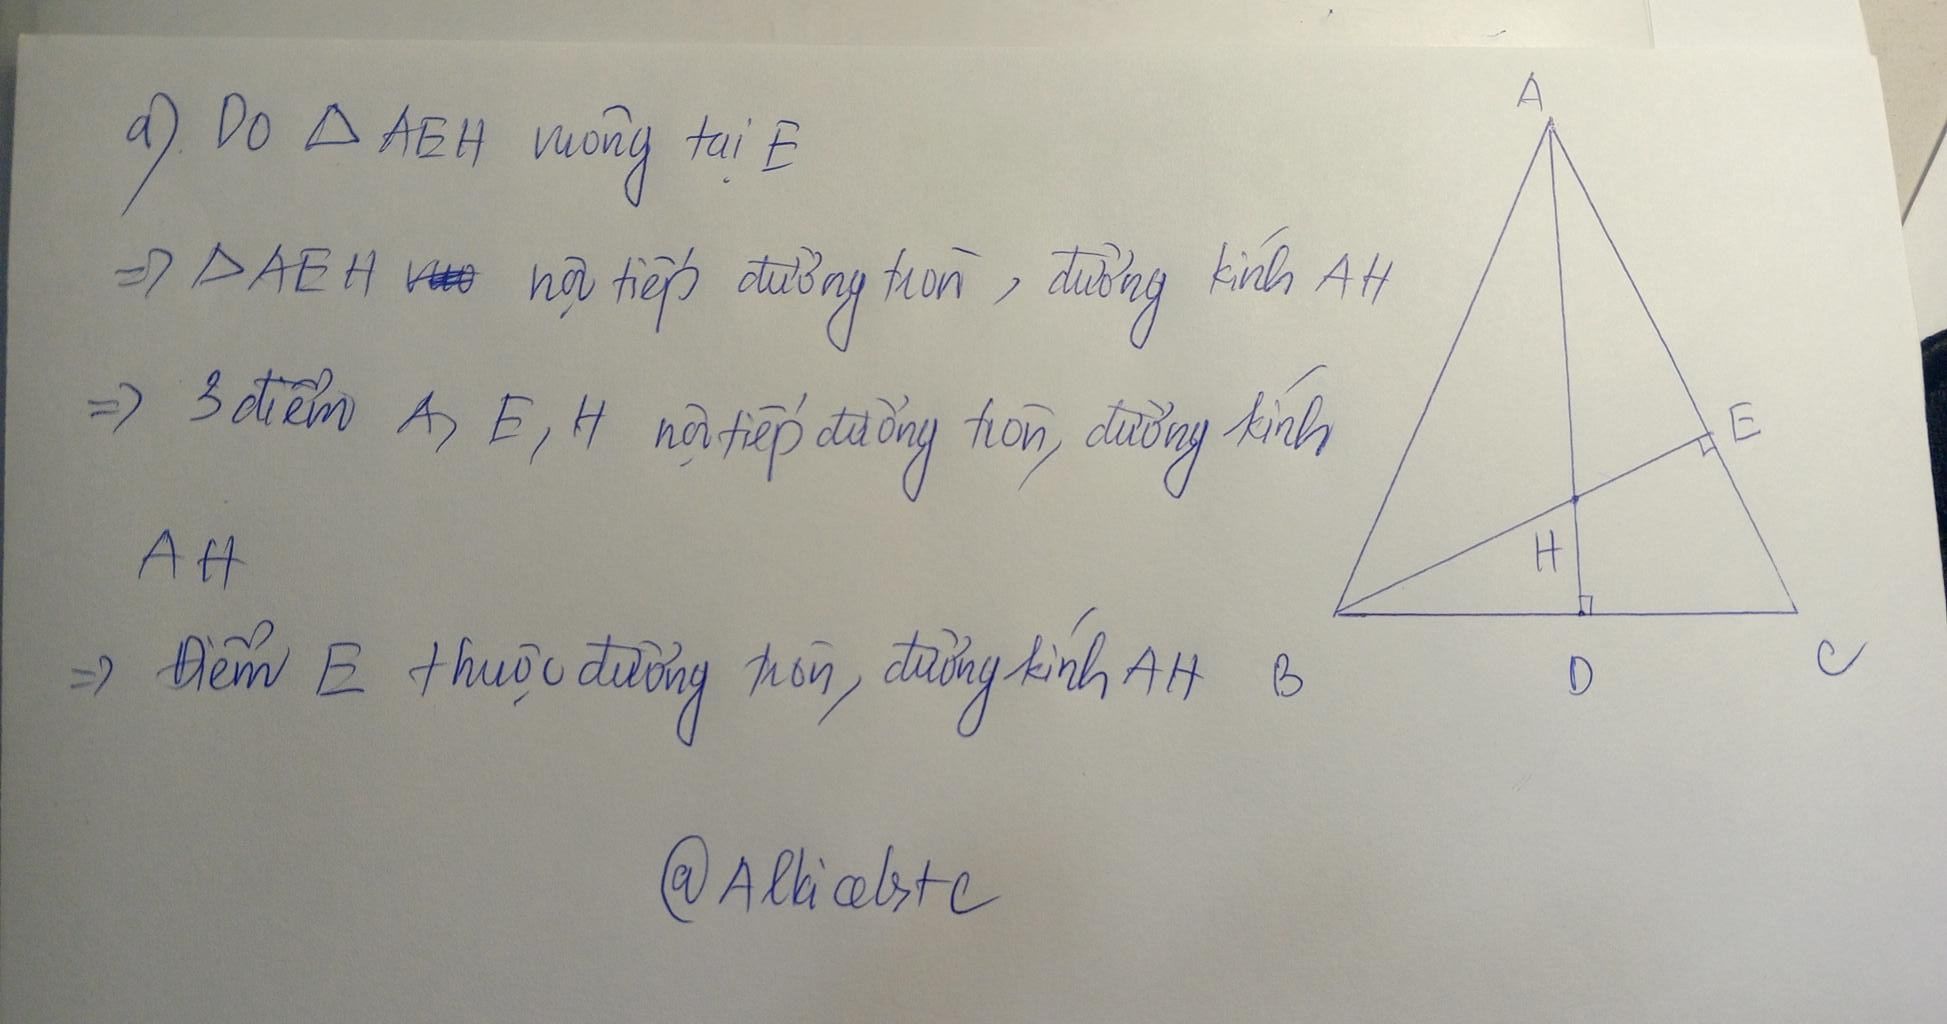 a) Do △AEH vuông tại E
=> △AEH nội tiếp đường tròn, đường kính AH
=> 3 điểm A, E, H nội tiếp đường tròn, đường kính
AH
=> Điểm E thuộc đường tròn, đường kính AH
A
E
H
B D C